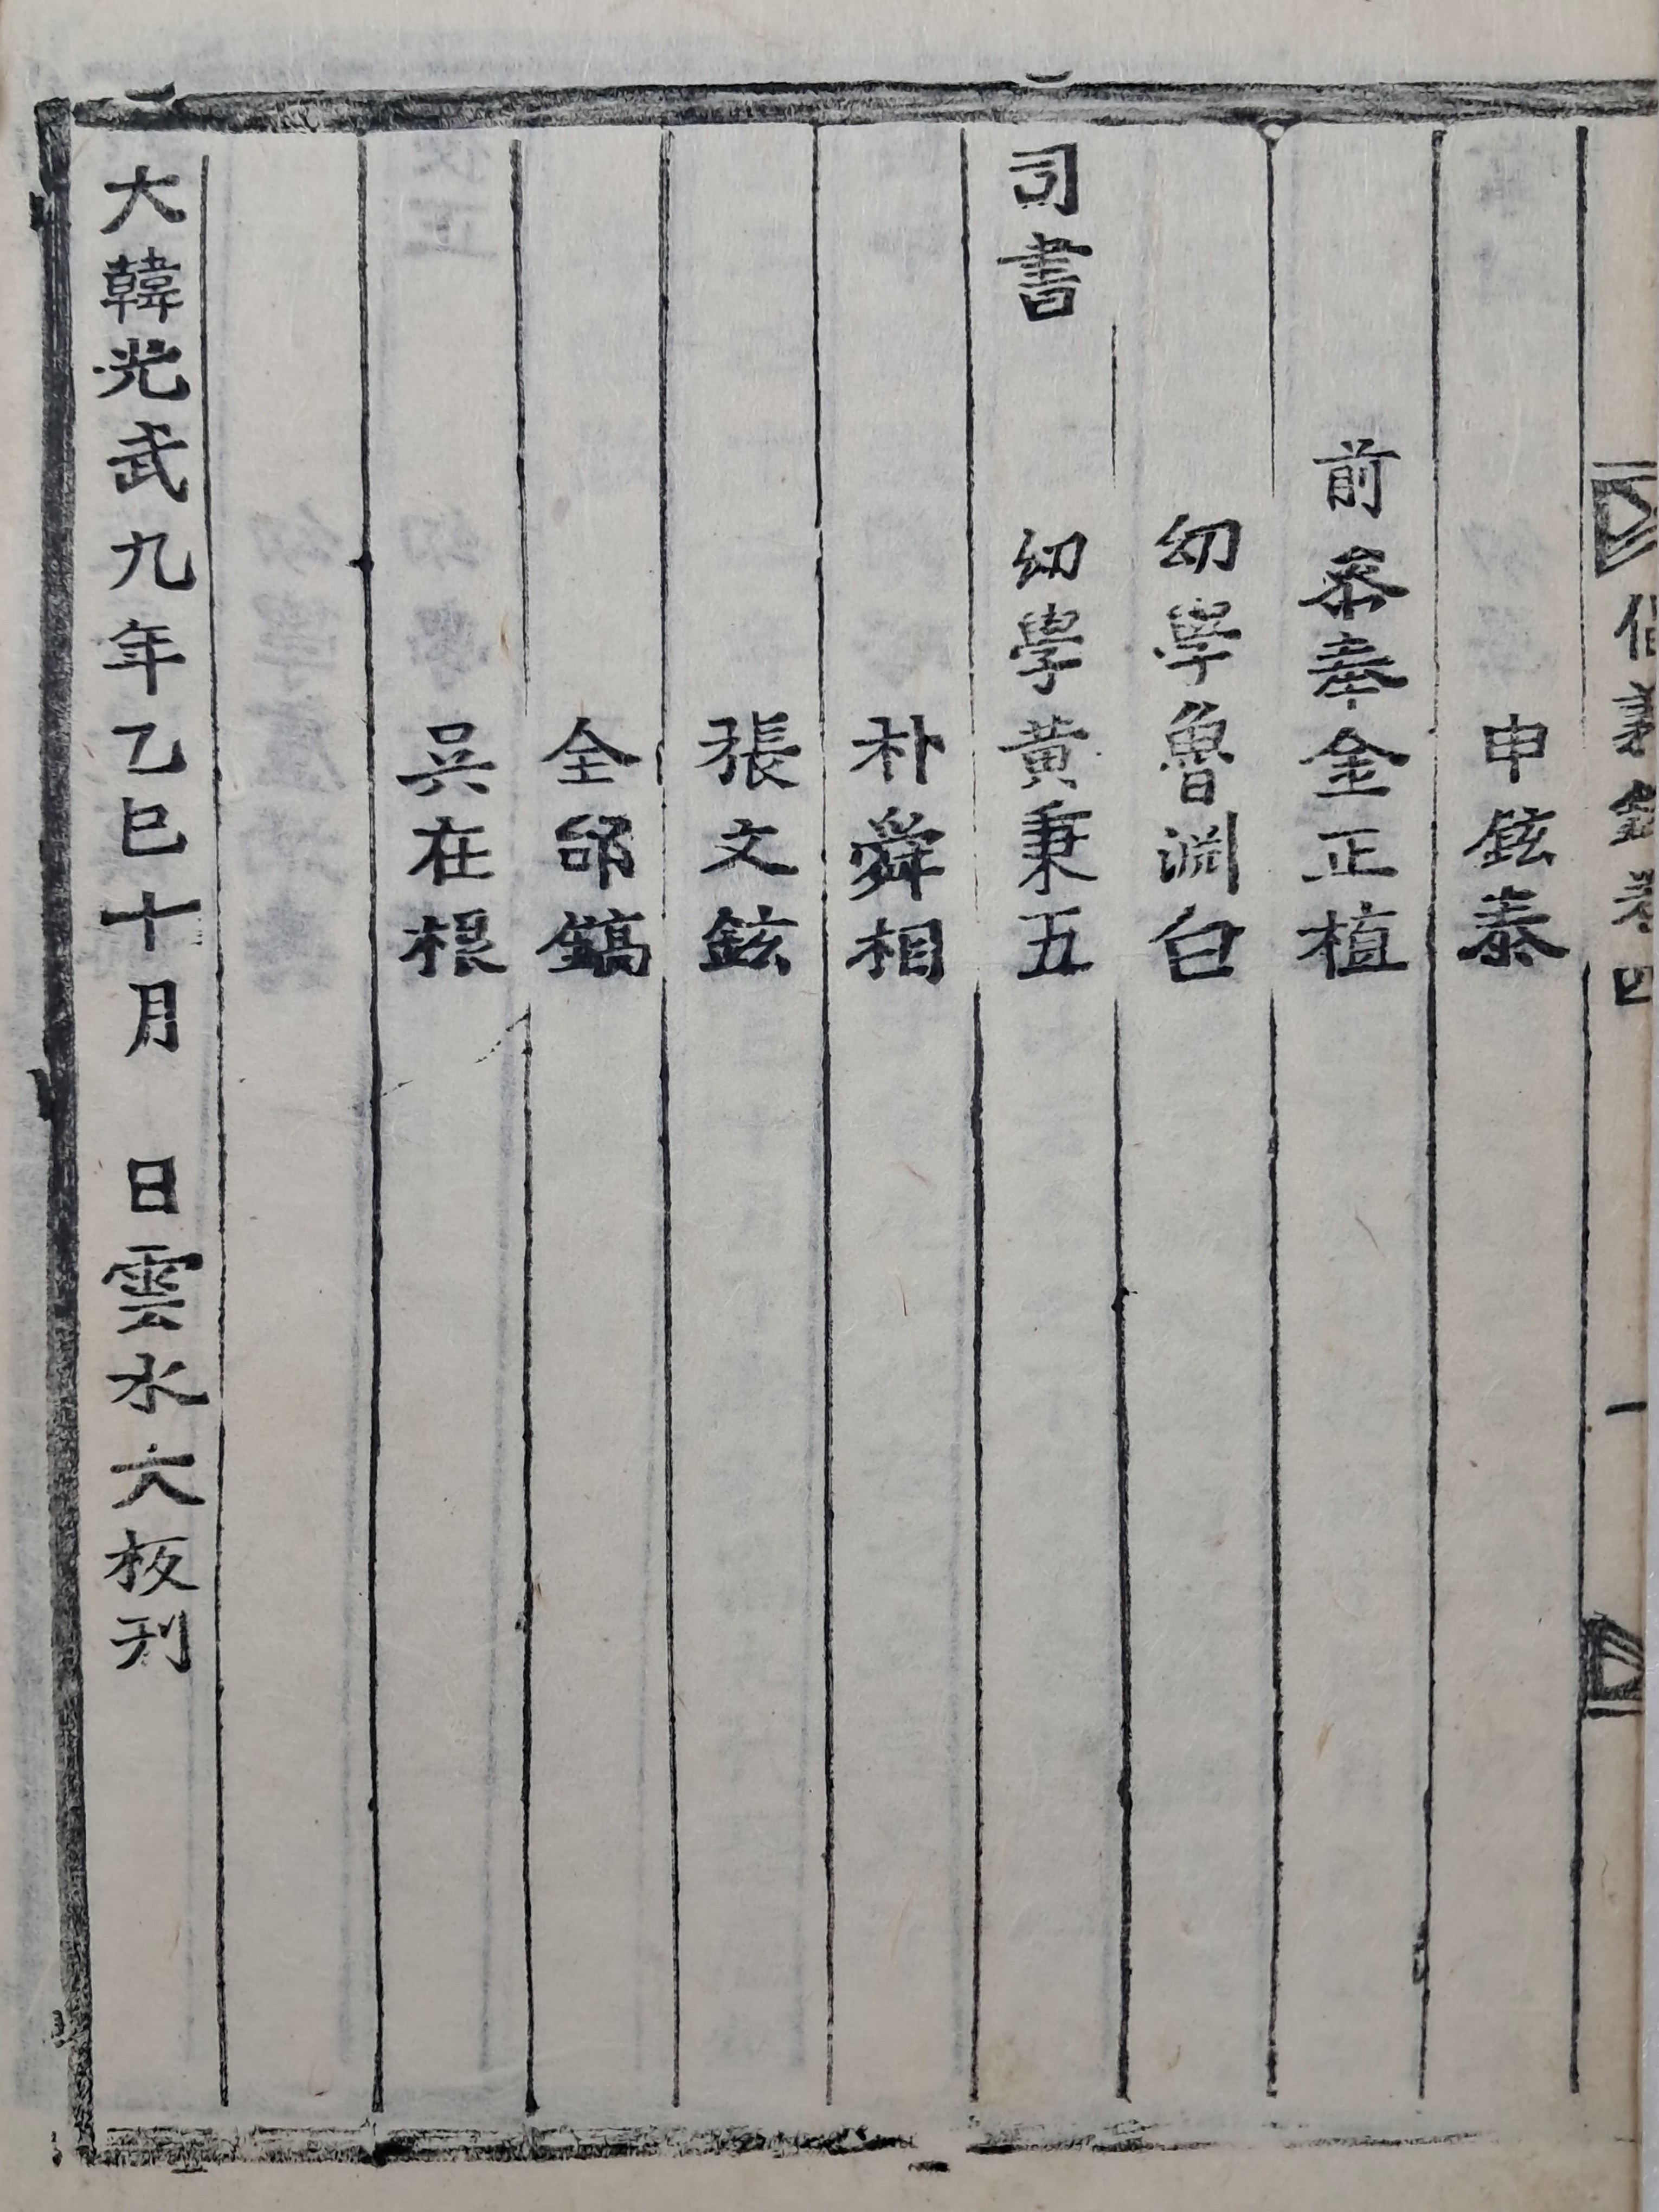 義錄卷四
一
申鉉泰
前參奉金正植
幼學魯淵白
司書 幼學黃秉五
朴舜相
張文鉉
全郃鎬
吳在根
大韓光武九年乙巳十月 日雲水六板刊